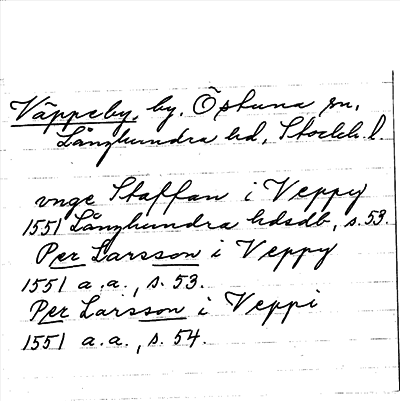 Väppeby, by. Östuna sn,
Långhundra hd, Stockh. l.
vnge Staffan i Veppy
1551 Långhundra hdsdb, s. 53.
Per Larsson i Veppy
1551 a.a., s. 53.
Per Larsson i Veppi
1551 a.a., s. 54.